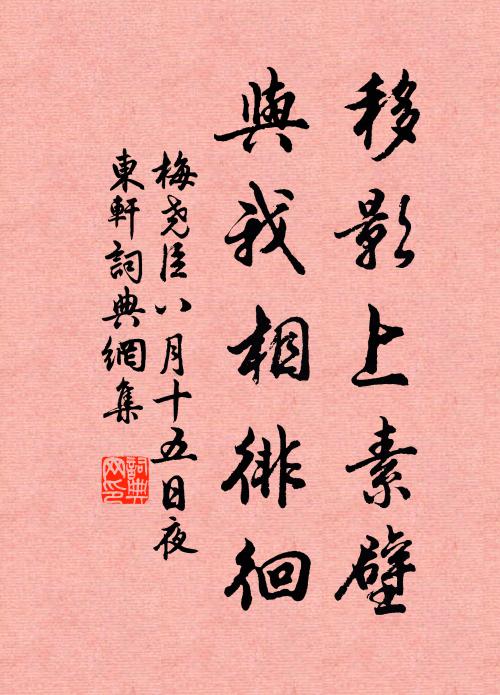 移影上素壁
與我相徘徊
梅堯臣八月十五日夜
東軒詞典網集
詞典
网印